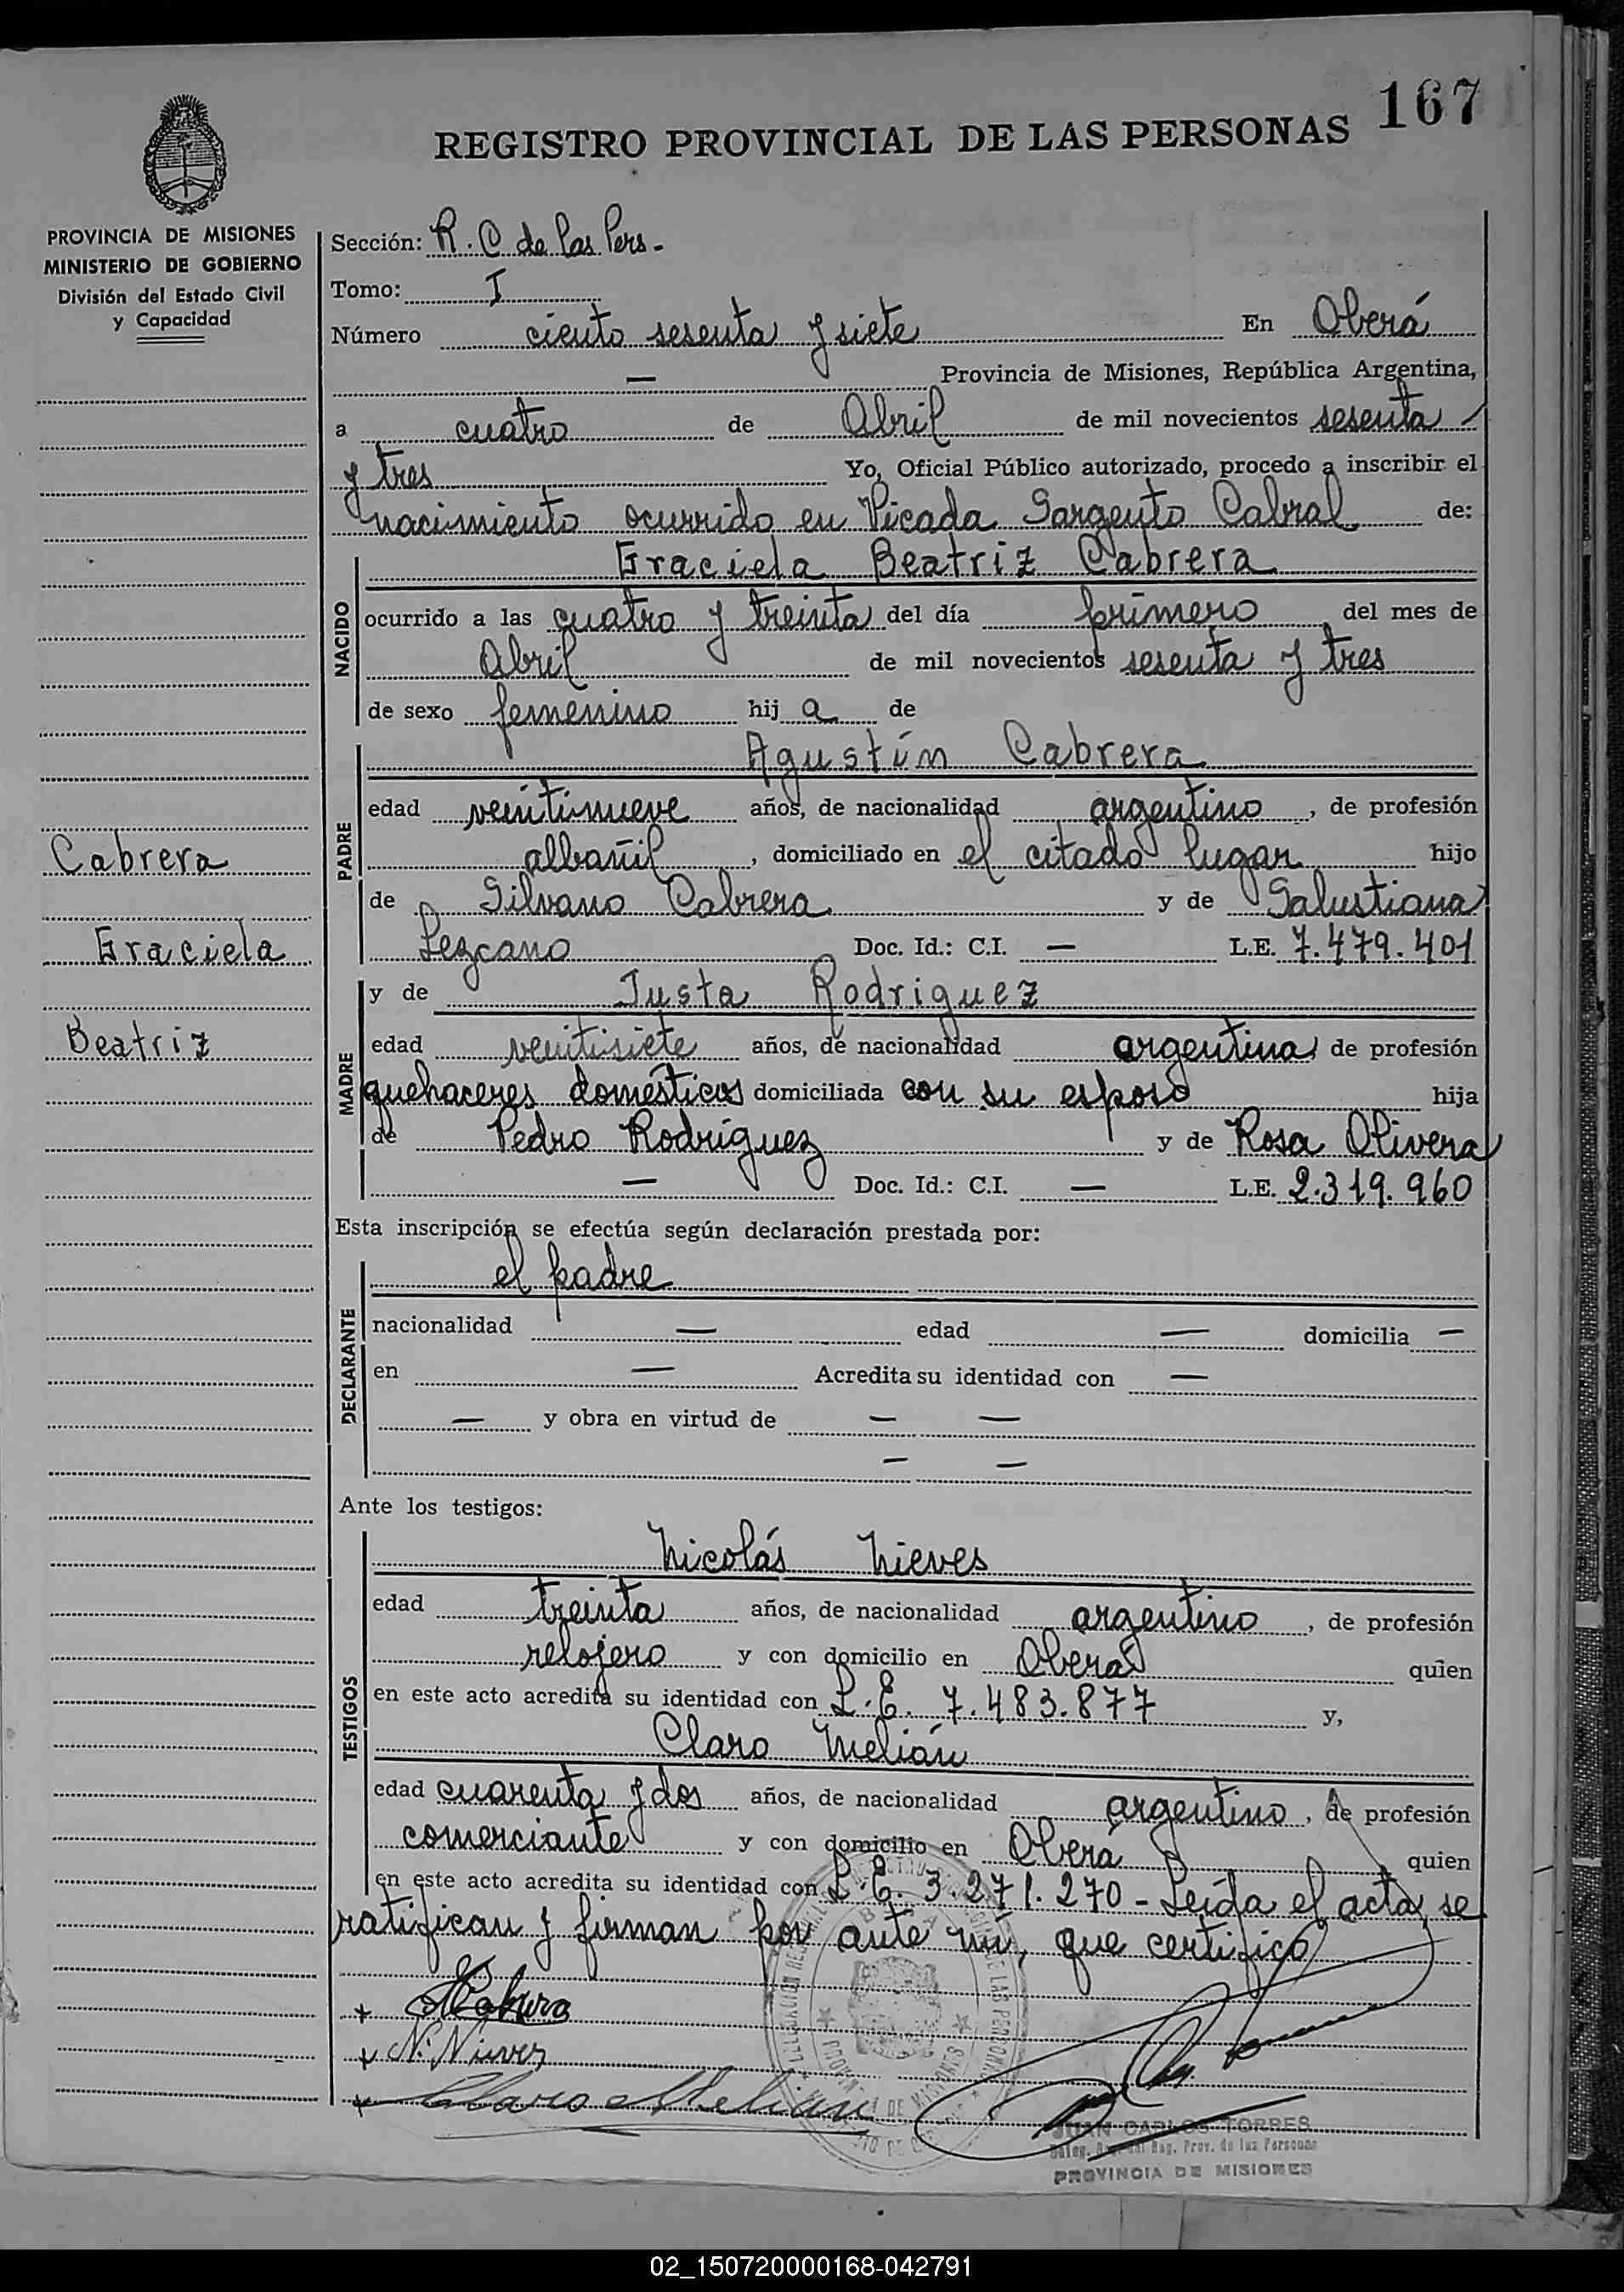 167
REGISTRO PROVINCIAL DE LAS PERSONAS
PROVINCIA DE MISIONES
MINISTERIO DE GOBIERNO
División del Estado Civil
y Capacidad
Sección: R. C de las Pers-
Tomo: I
Número ciento sesenta y siete En Oberá
— Provincia de Misiones, República Argentina,
a cuatro de Abril de mil novecientos sesenta
y tres Yo, Oficial Público autorizado, procedo a inscribir el
nacimiento ocurrido en Picada Sargento Cabral de:
NACIDO
Graciela Beatriz Cabrera
ocurrido a las cuatro y treinta del día primero del mes de
Abril de mil novecientos sesenta y tres
de sexo femenino hij a de
PADRE
Agustín Cabrera
edad veintinueve años, de nacionalidad argentino, de profesión
albañil, domiciliado en el citado lugar hijo
de Silvano Cabrera y de Salustiana
Lezcano Doc. Id.: C.I. — L.E. 7.479.401
MADRE
y de Justa Rodriguez
edad veintisiete años, de nacionalidad argentina de profesión
quehaceres domésticos domiciliada con su esposo hija
de Pedro Rodríguez y de Rosa Olivera
— Doc. Id.: C.I. — L.E. 2.319.960
Cabrera
Graciela
Beatriz
Esta inscripción se efectúa según declaración prestada por:
DECLARANTE
el padre
nacionalidad — edad — domicilia —
en — Acredita su identidad con —
— y obra en virtud de — —
— —
Ante los testigos:
TESTIGOS
Nicolás Nieves
edad treinta años, de nacionalidad argentino, de profesión
relojero y con domicilio en Oberá quien
en este acto acredita su identidad con L.E. 7.483.877 y,
Claro Melián
edad cuarenta y dos años, de nacionalidad argentino, de profesión
comerciante y con domicilio en Oberá quien
en este acto acredita su identidad con L.E. 3.271.270 - Leída el acta, se
ratifican y firman por ante mí, que certifico
+ ACabrera
+ N. Nieves
+ Claro Melian
JUAN CARLOS TORRES
Reg. Prov. de las Personas
PROVINCIA DE MISIONES
02_150720000168-042791